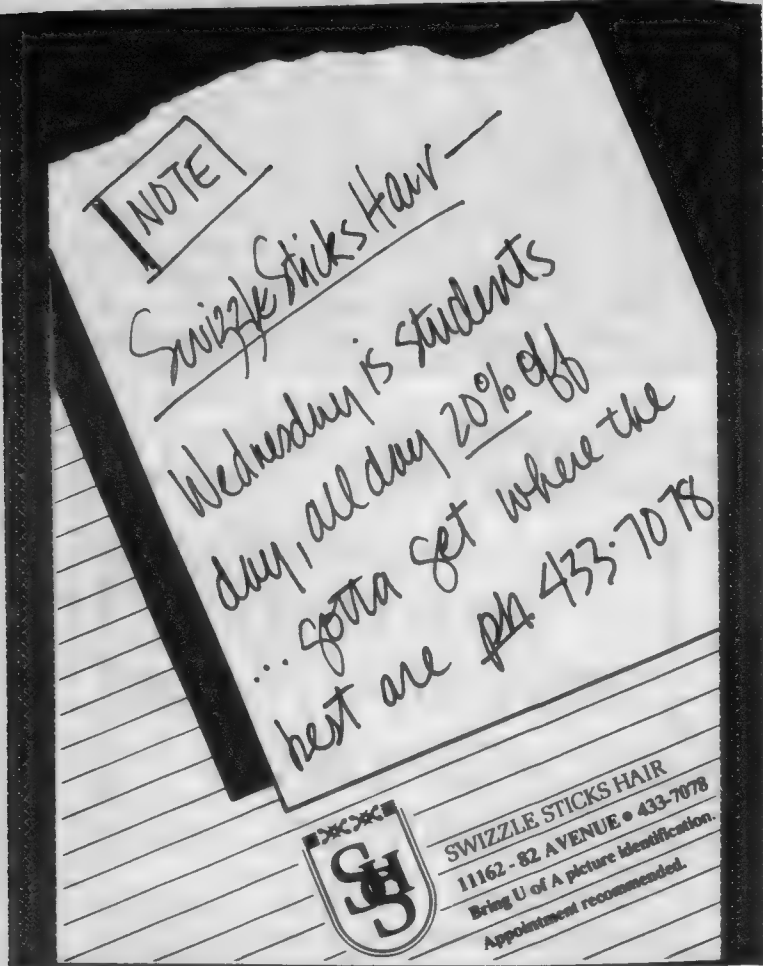 NOTE
Swizzle Sticks Hair —
Wednesday is students
day, all day 20% off
... gotta get where the
best are ph. 433-7078
SHS
SWIZZLE STICKS HAIR
11162 - 82 AVENUE • 433-7078
Bring U of A picture identification.
Appointment recommended.